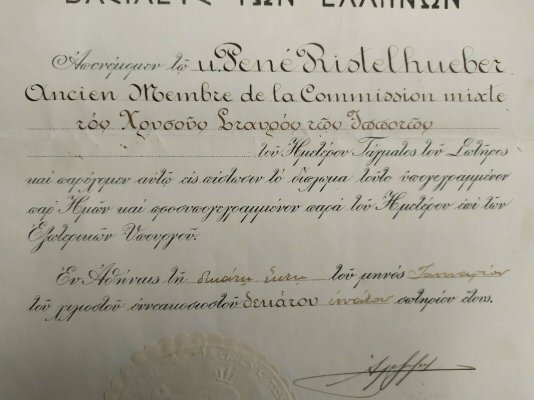 ΒΑΣΙΛΕΥΣ ΤΩΝ ΕΛΛΗΝΩΝ
Ἀπονέμομεν τῷ κ. René Ristelhueber
Ancien Membre de la Commission mixte
τὸν Χρυσοῦν Σταυρὸν τῶν Ἱπποτῶν
τοῦ Ἡμετέρου Τάγματος τοῦ Σωτῆρος
καὶ παρέχομεν αὐτῷ εἰς πίστωσιν τὸ δίπλωμα τοῦτο ὑπογεγραμμένον
παρ' Ἡμῶν καὶ προσυπογεγραμμένον παρὰ τοῦ Ἡμετέρου ἐπὶ τῶν
Ἐξωτερικῶν Ὑπουργοῦ.
Ἐν Ἀθήναις τῇ δεκάτῃ ἕκτῃ τοῦ μηνὸς Ἰανουαρίου
τοῦ χιλιοστοῦ ἐννεακοσιοστοῦ δεκάτου ἐνάτου σωτηρίου ἔτους.